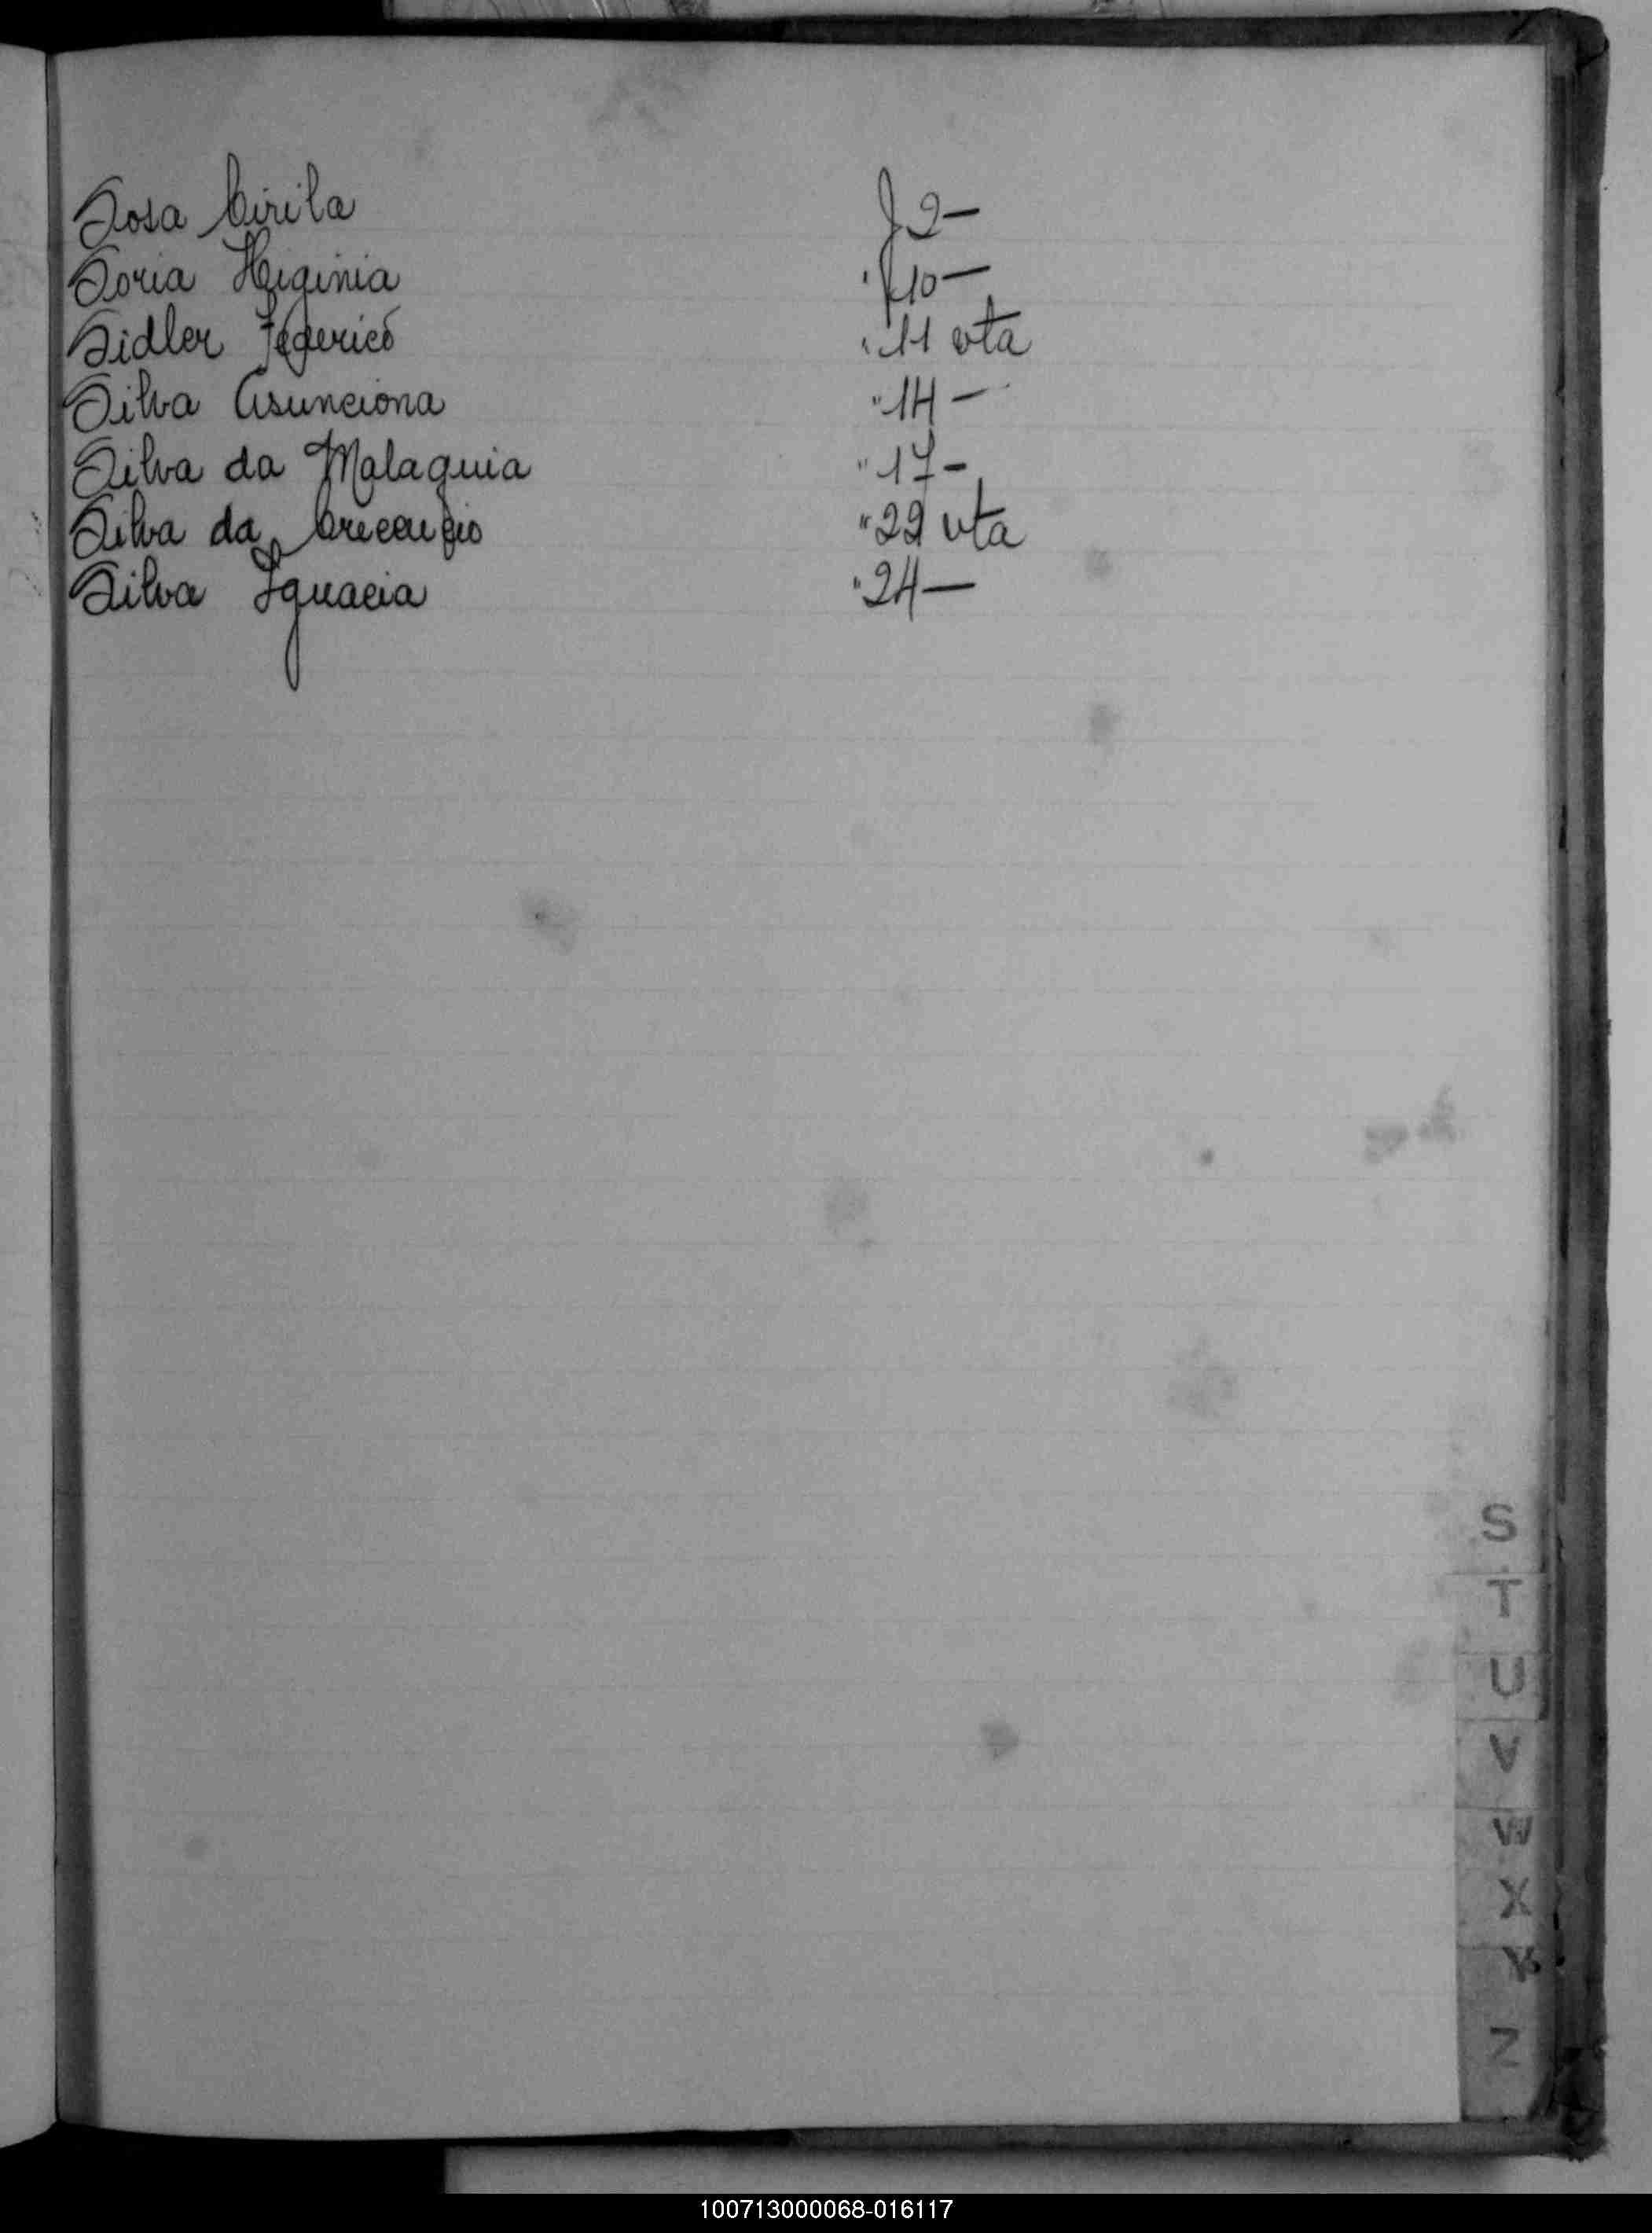 Sosa Cirila f 2—
Soria Higinia " 10—
Sidler Federico " 11 vta
Silva Asunciona " 14—
Silva da Malaquia " 17—
Silva da " 22 vta
Silva Ignacia " 24—
S
T
U
V
W
X
Y
Z
100713000068-016117